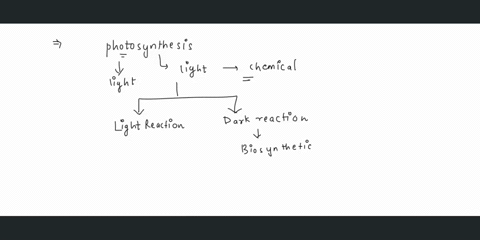 ⇒ photosynthesis
light → chemical
light
Light Reaction
Dark reaction
Biosynthetic